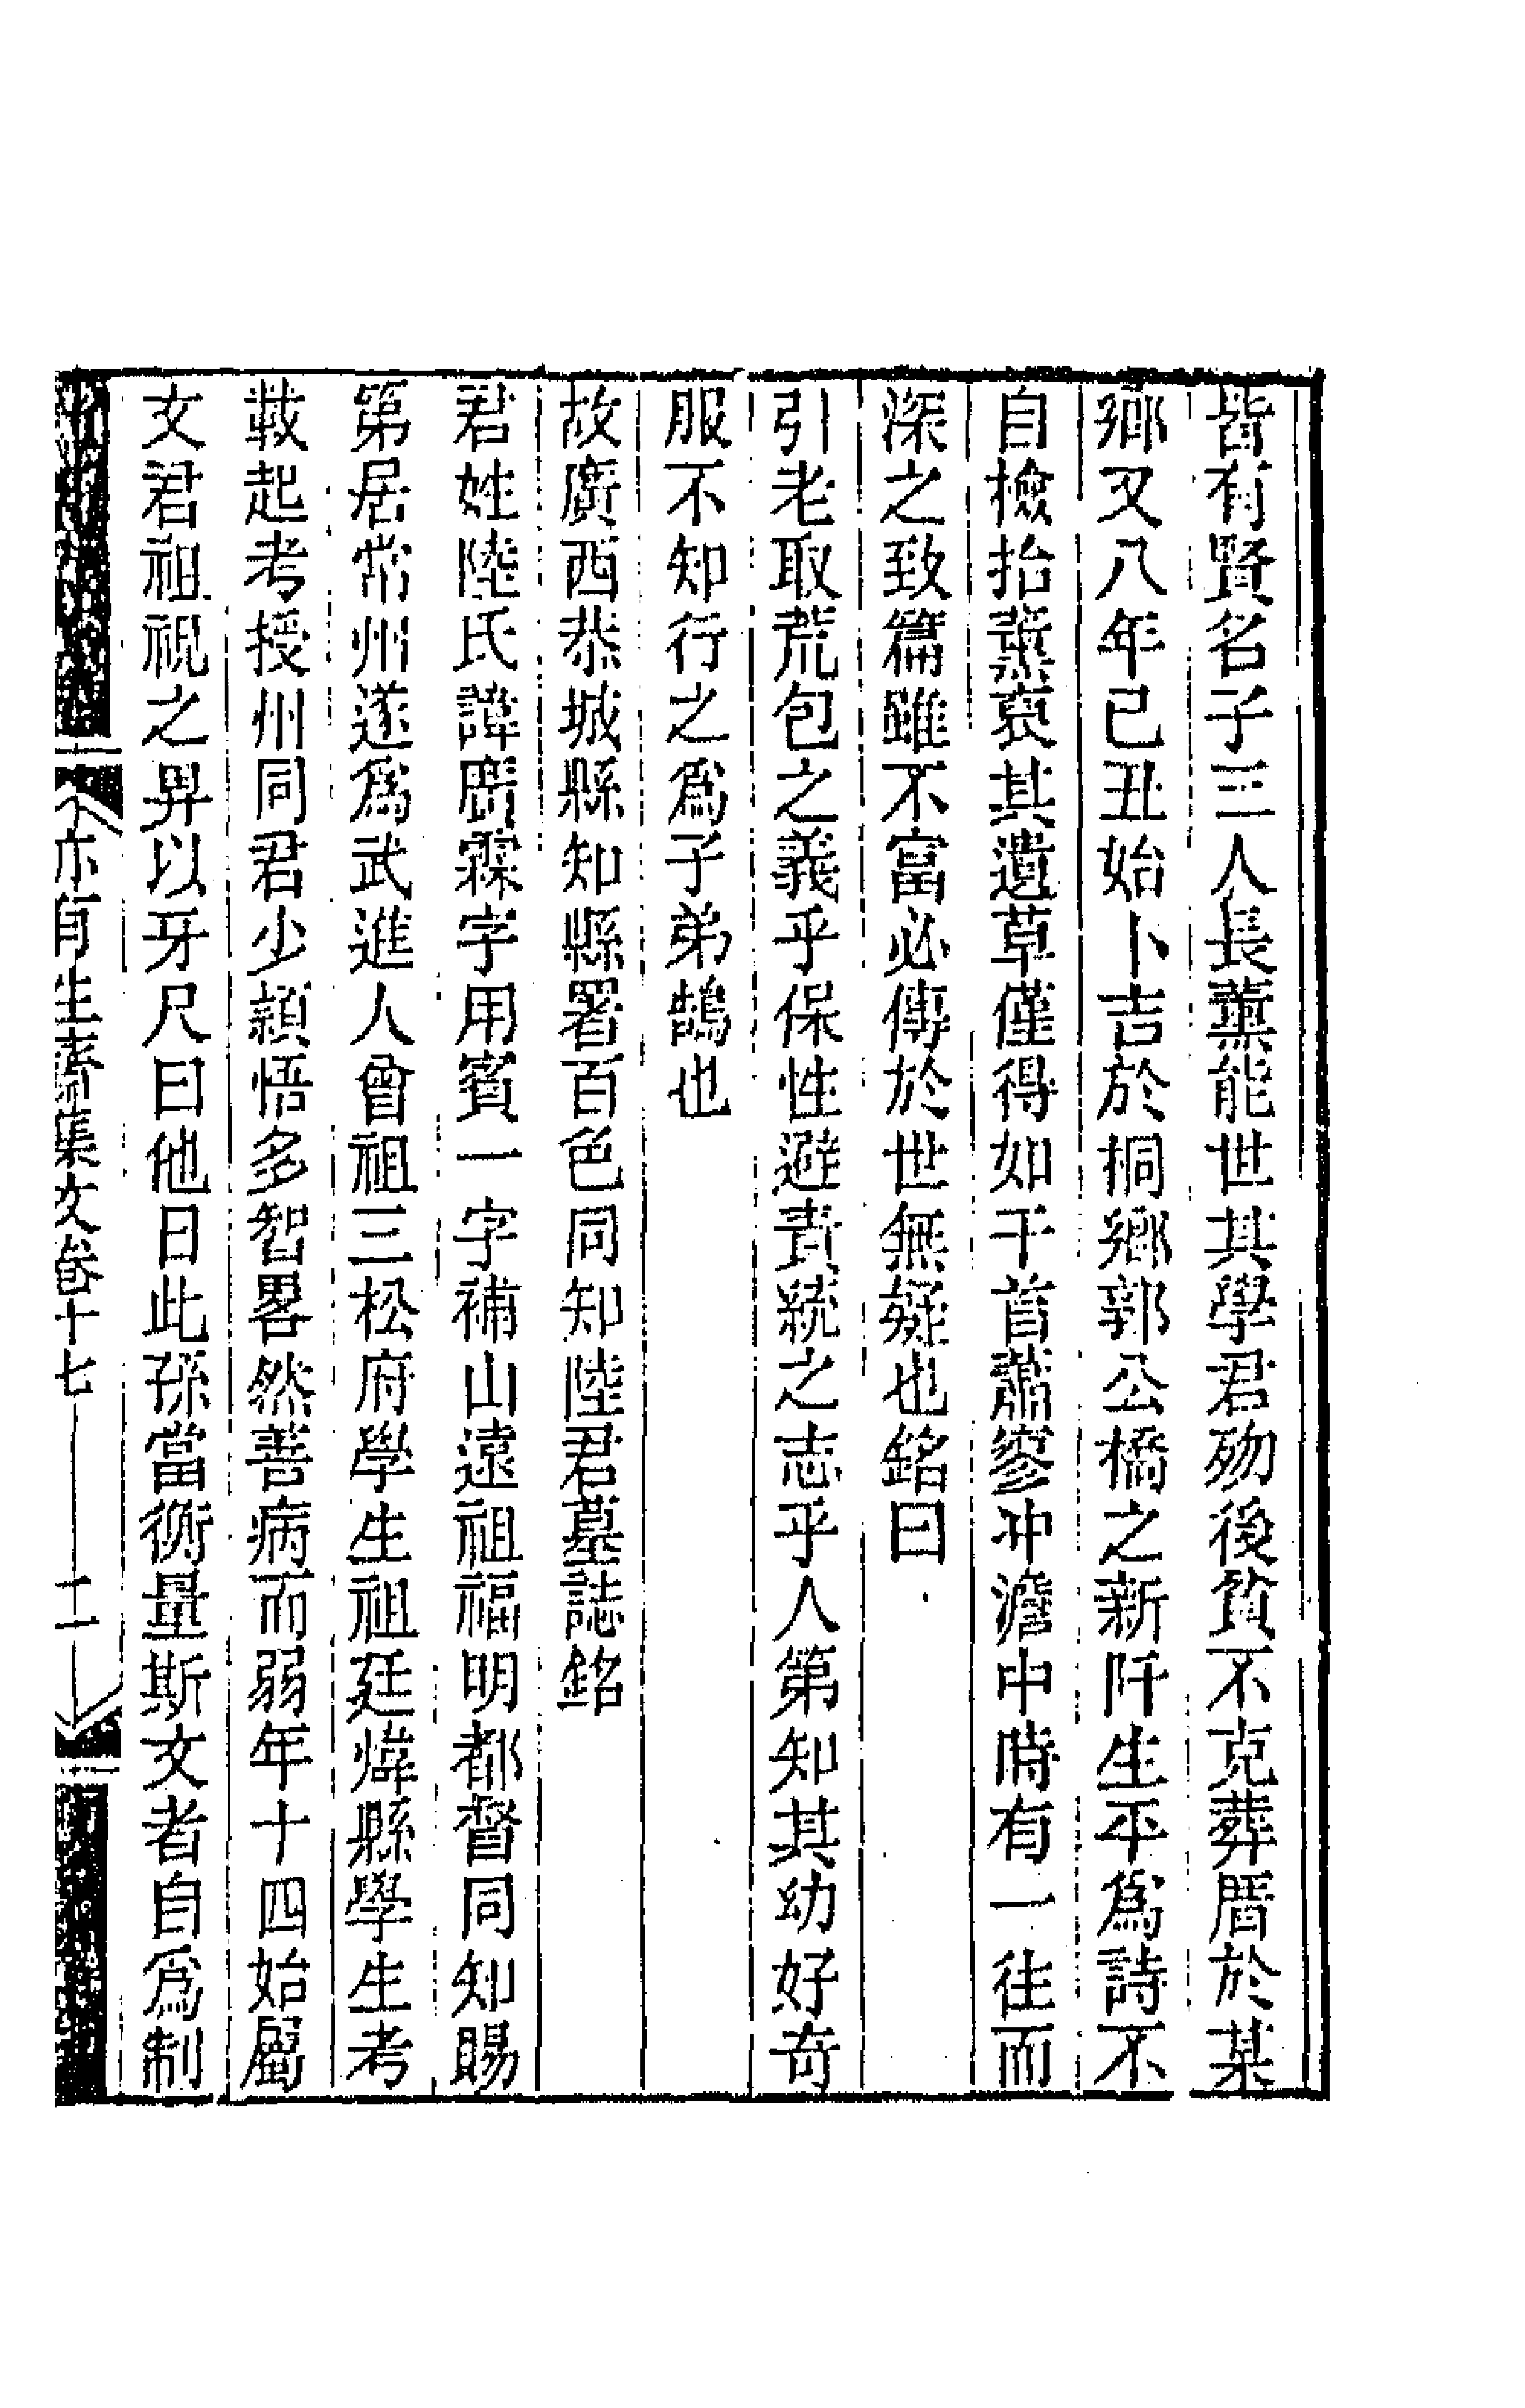 皆有賢名子三人長薰能世其學君歿後貧不克葬厝於某
鄉又八年已丑始卜吉於桐鄉郭公橋之新阡生平爲詩不
自檢拾薰裒其遺草僅得如干首蕭寥冲澹中時有一往而
深之致篇雖不富必傳於世無疑也銘曰
引老取荒包之義乎保性避責統之志乎人第知其幼好奇
服不知行之爲子弟鵠也
故廣西恭城縣知縣署百色同知陸君墓誌銘
君姓陸氏諱廣霖字用賓一字補山遠祖福明都督同知賜
第居常州遂爲武進人曾祖三松府學生祖廷煒縣學生考
載起考授州同君少穎悟多智畧然善病而弱年十四始屬
文君祖視之畀以牙尺曰他日此孫當衡量斯文者自爲制
亦有生齋集文卷十七 二